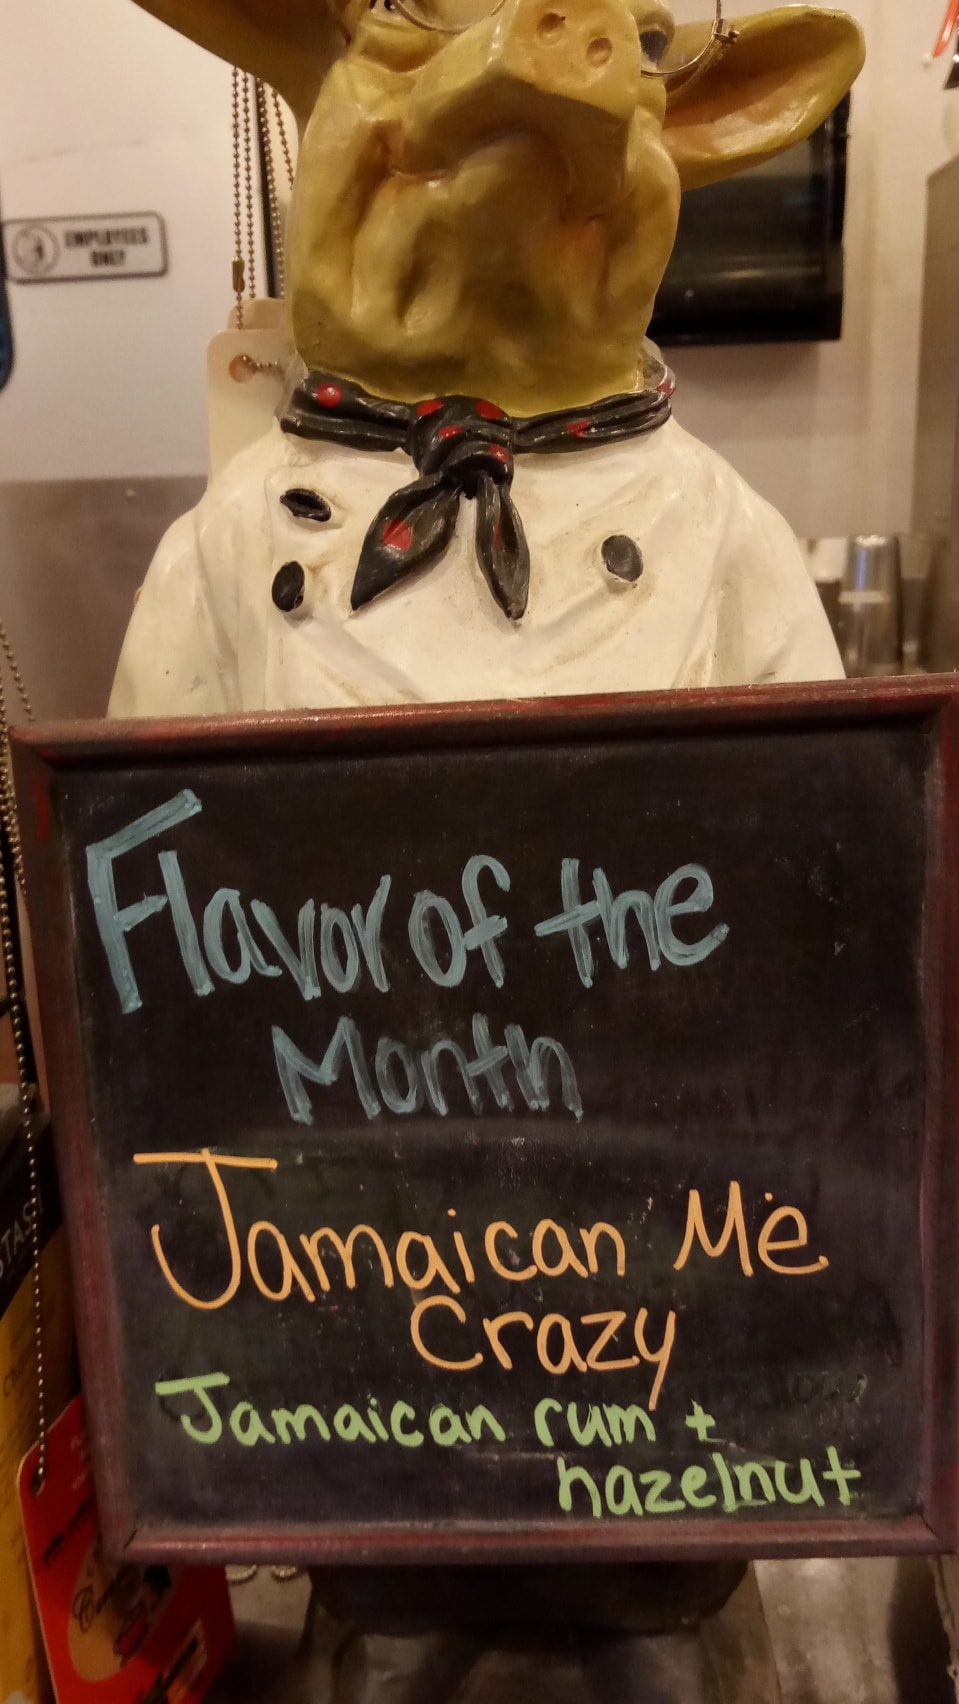 EMPLOYEES
ONLY
Flavor of the
Month
Jamaican Me
Crazy
Jamaican rum +
hazelnut